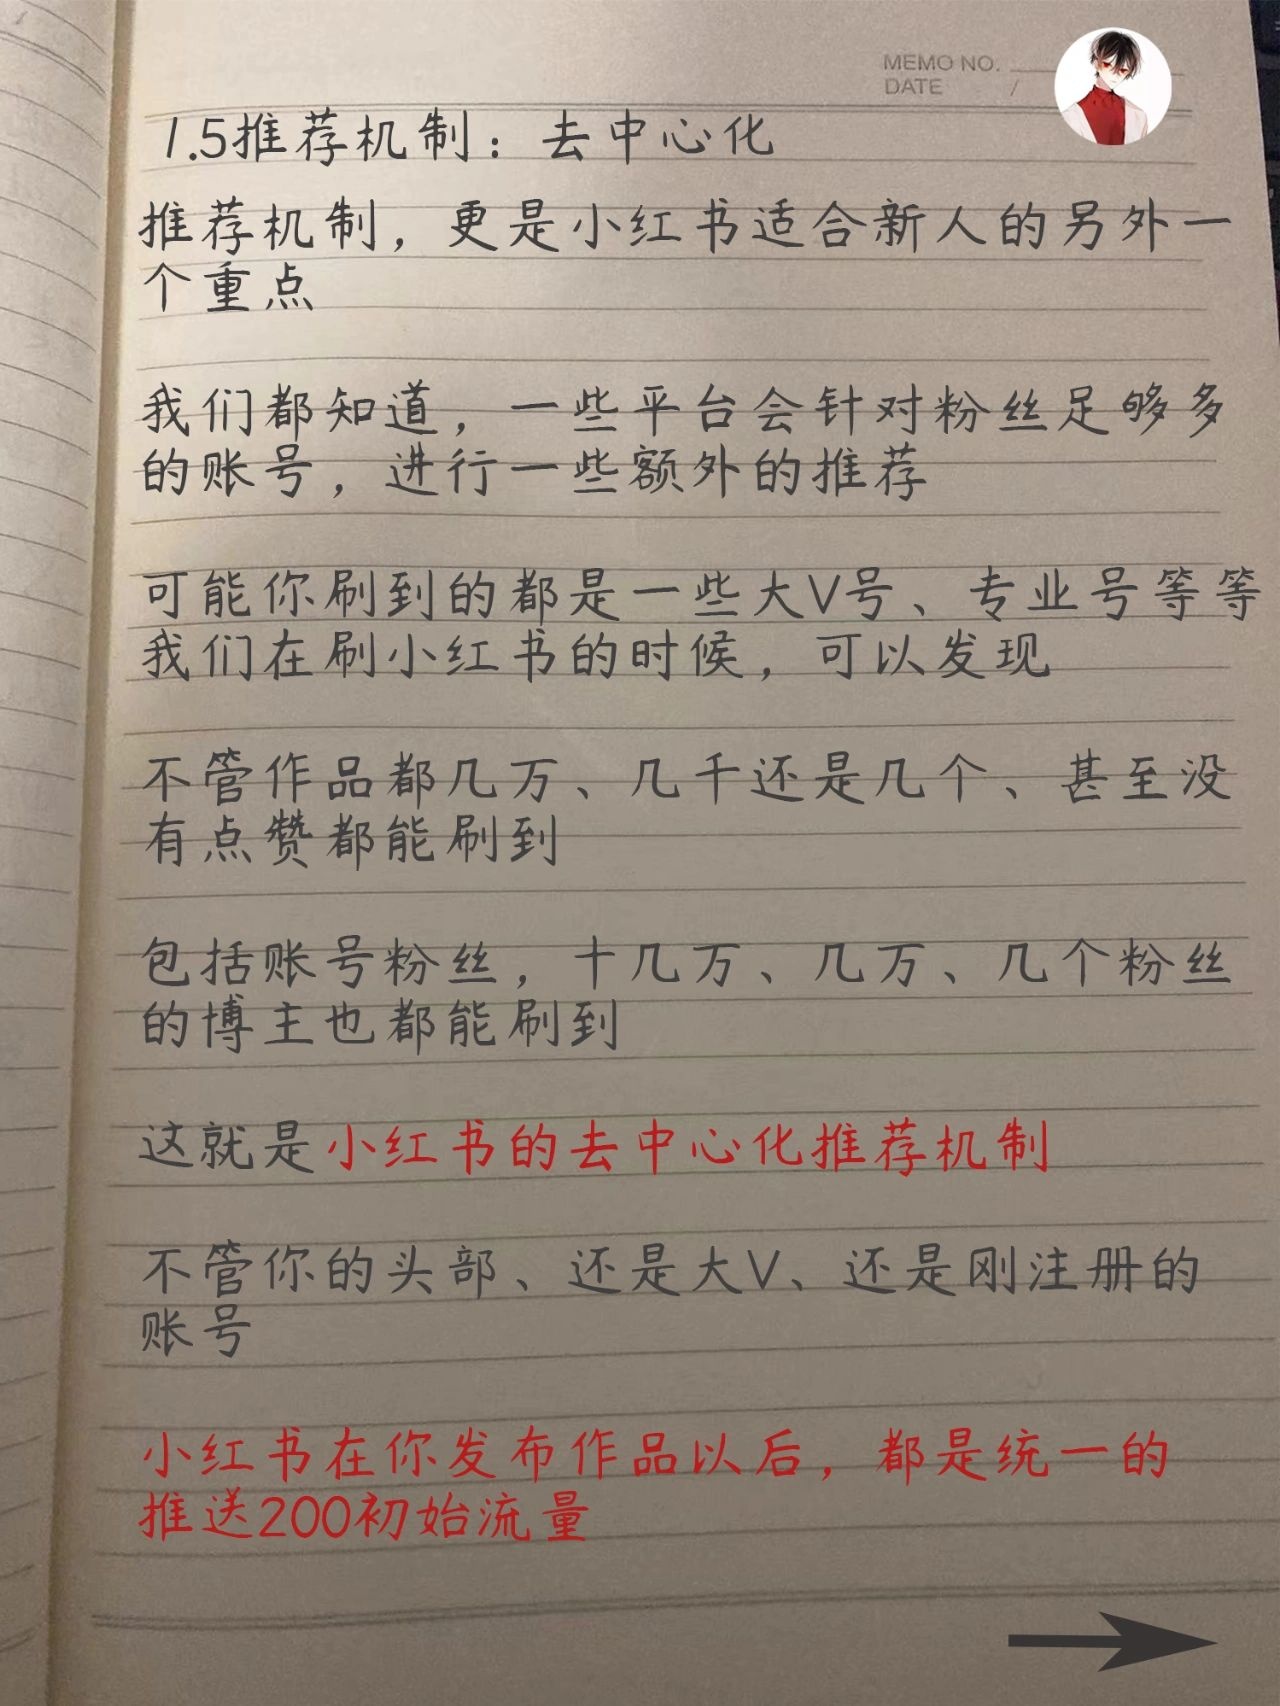 MEMO NO.
DATE /
1.5推荐机制：去中心化
推荐机制，更是小红书适合新人的另外一
个重点
我们都知道，一些平台会针对粉丝足够多
的账号，进行一些额外的推荐
可能你刷到的都是一些大V号、专业号等等
我们在刷小红书的时候，可以发现
不管作品都几万、几千还是几个、甚至没
有点赞都能刷到
包括账号粉丝，十几万、几万、几个粉丝
的博主也都能刷到
这就是小红书的去中心化推荐机制
不管你的头部、还是大V、还是刚注册的
账号
小红书在你发布作品以后，都是统一的
推送200初始流量